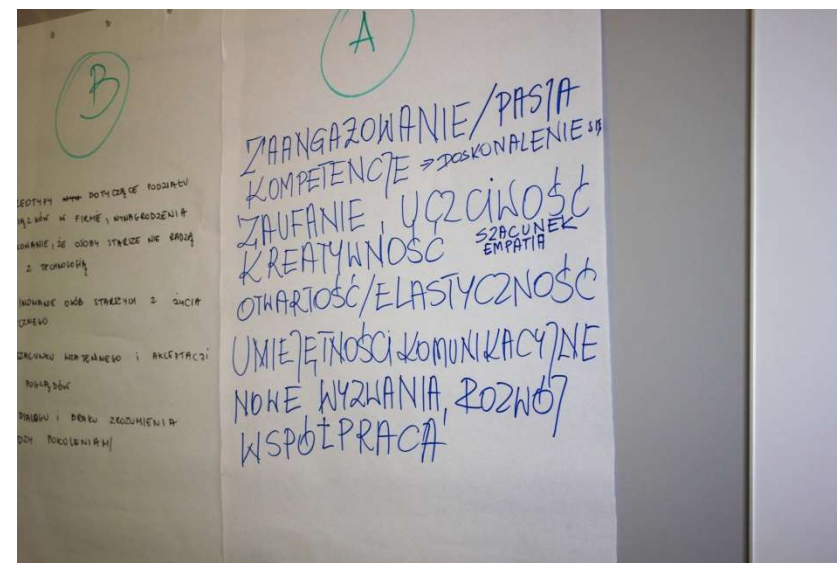 B
DOTYCZĄCE PODZIAŁU
W FIRMIE, WYNAGRODZENIA
ŻE OSOBY STARSZE NIE RADZĄ
Z TECHNOLOGIĄ
OSÓB STARSZYCH Z ŻYCIA
WZAJEMNEGO I AKCEPTACJI
POGLĄDÓW
DIALOGU I BRAKU ZROZUMIENIA
POKOLENIAMI
A
ZAANGAŻOWANIE/PASJA
KOMPETENCJE → DOSKONALENIE SIĘ
ZAUFANIE, UCZCIWOŚĆ
KREATYWNOŚĆ SZACUNEK
EMPATIA
OTWARTOŚĆ/ELASTYCZNOŚĆ
UMIEJĘTNOŚCI KOMUNIKACYJNE
NOWE WYZWANIA, ROZWÓJ
WSPÓŁPRACA